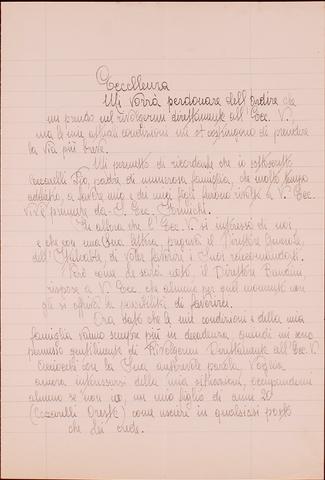 Eccellenza
Mi vorrà perdonare dell'ardire che
mi prendo nel rivolgermi direttamente all'Ecc. V.,
ma le mie attuali condizioni mi costringono di prendere
la via più breve.
Mi permetto di ricordarle che io sottoscritto
Ceccarelli Pio, padre di numerosa famiglia, che molto tempo
addietro, a favore uno dei miei figli furono rivolte a V. Ecc.
vive premure da S. Ecc.
Fu allora che l'Ecc. V. si interessò di noi
e che con una Sua lettera, pregava il Direttore Generale
dell' di voler favorire i Suoi raccomandati.
Però come Le sarà noto il Direttore
rispose a V. Ecc. che almeno per quel momento non
gli si offriva la possibilità di favorirci.
Ora dato che le mie condizioni e della mia
famiglia vanno sempre più in decadenza, quindi mi sono
permesso gentilmente di Rivolgermi Direttamente all'Ecc. V.
cciocchè con la Sua autorevole parola, Voglia
ancora interessarsi della mia situazione, occupandomi
almeno se non me, un mio figlio di anni 20
(Ceccarelli Oreste) come usciere in qualsiasi posto
che Lei crede.